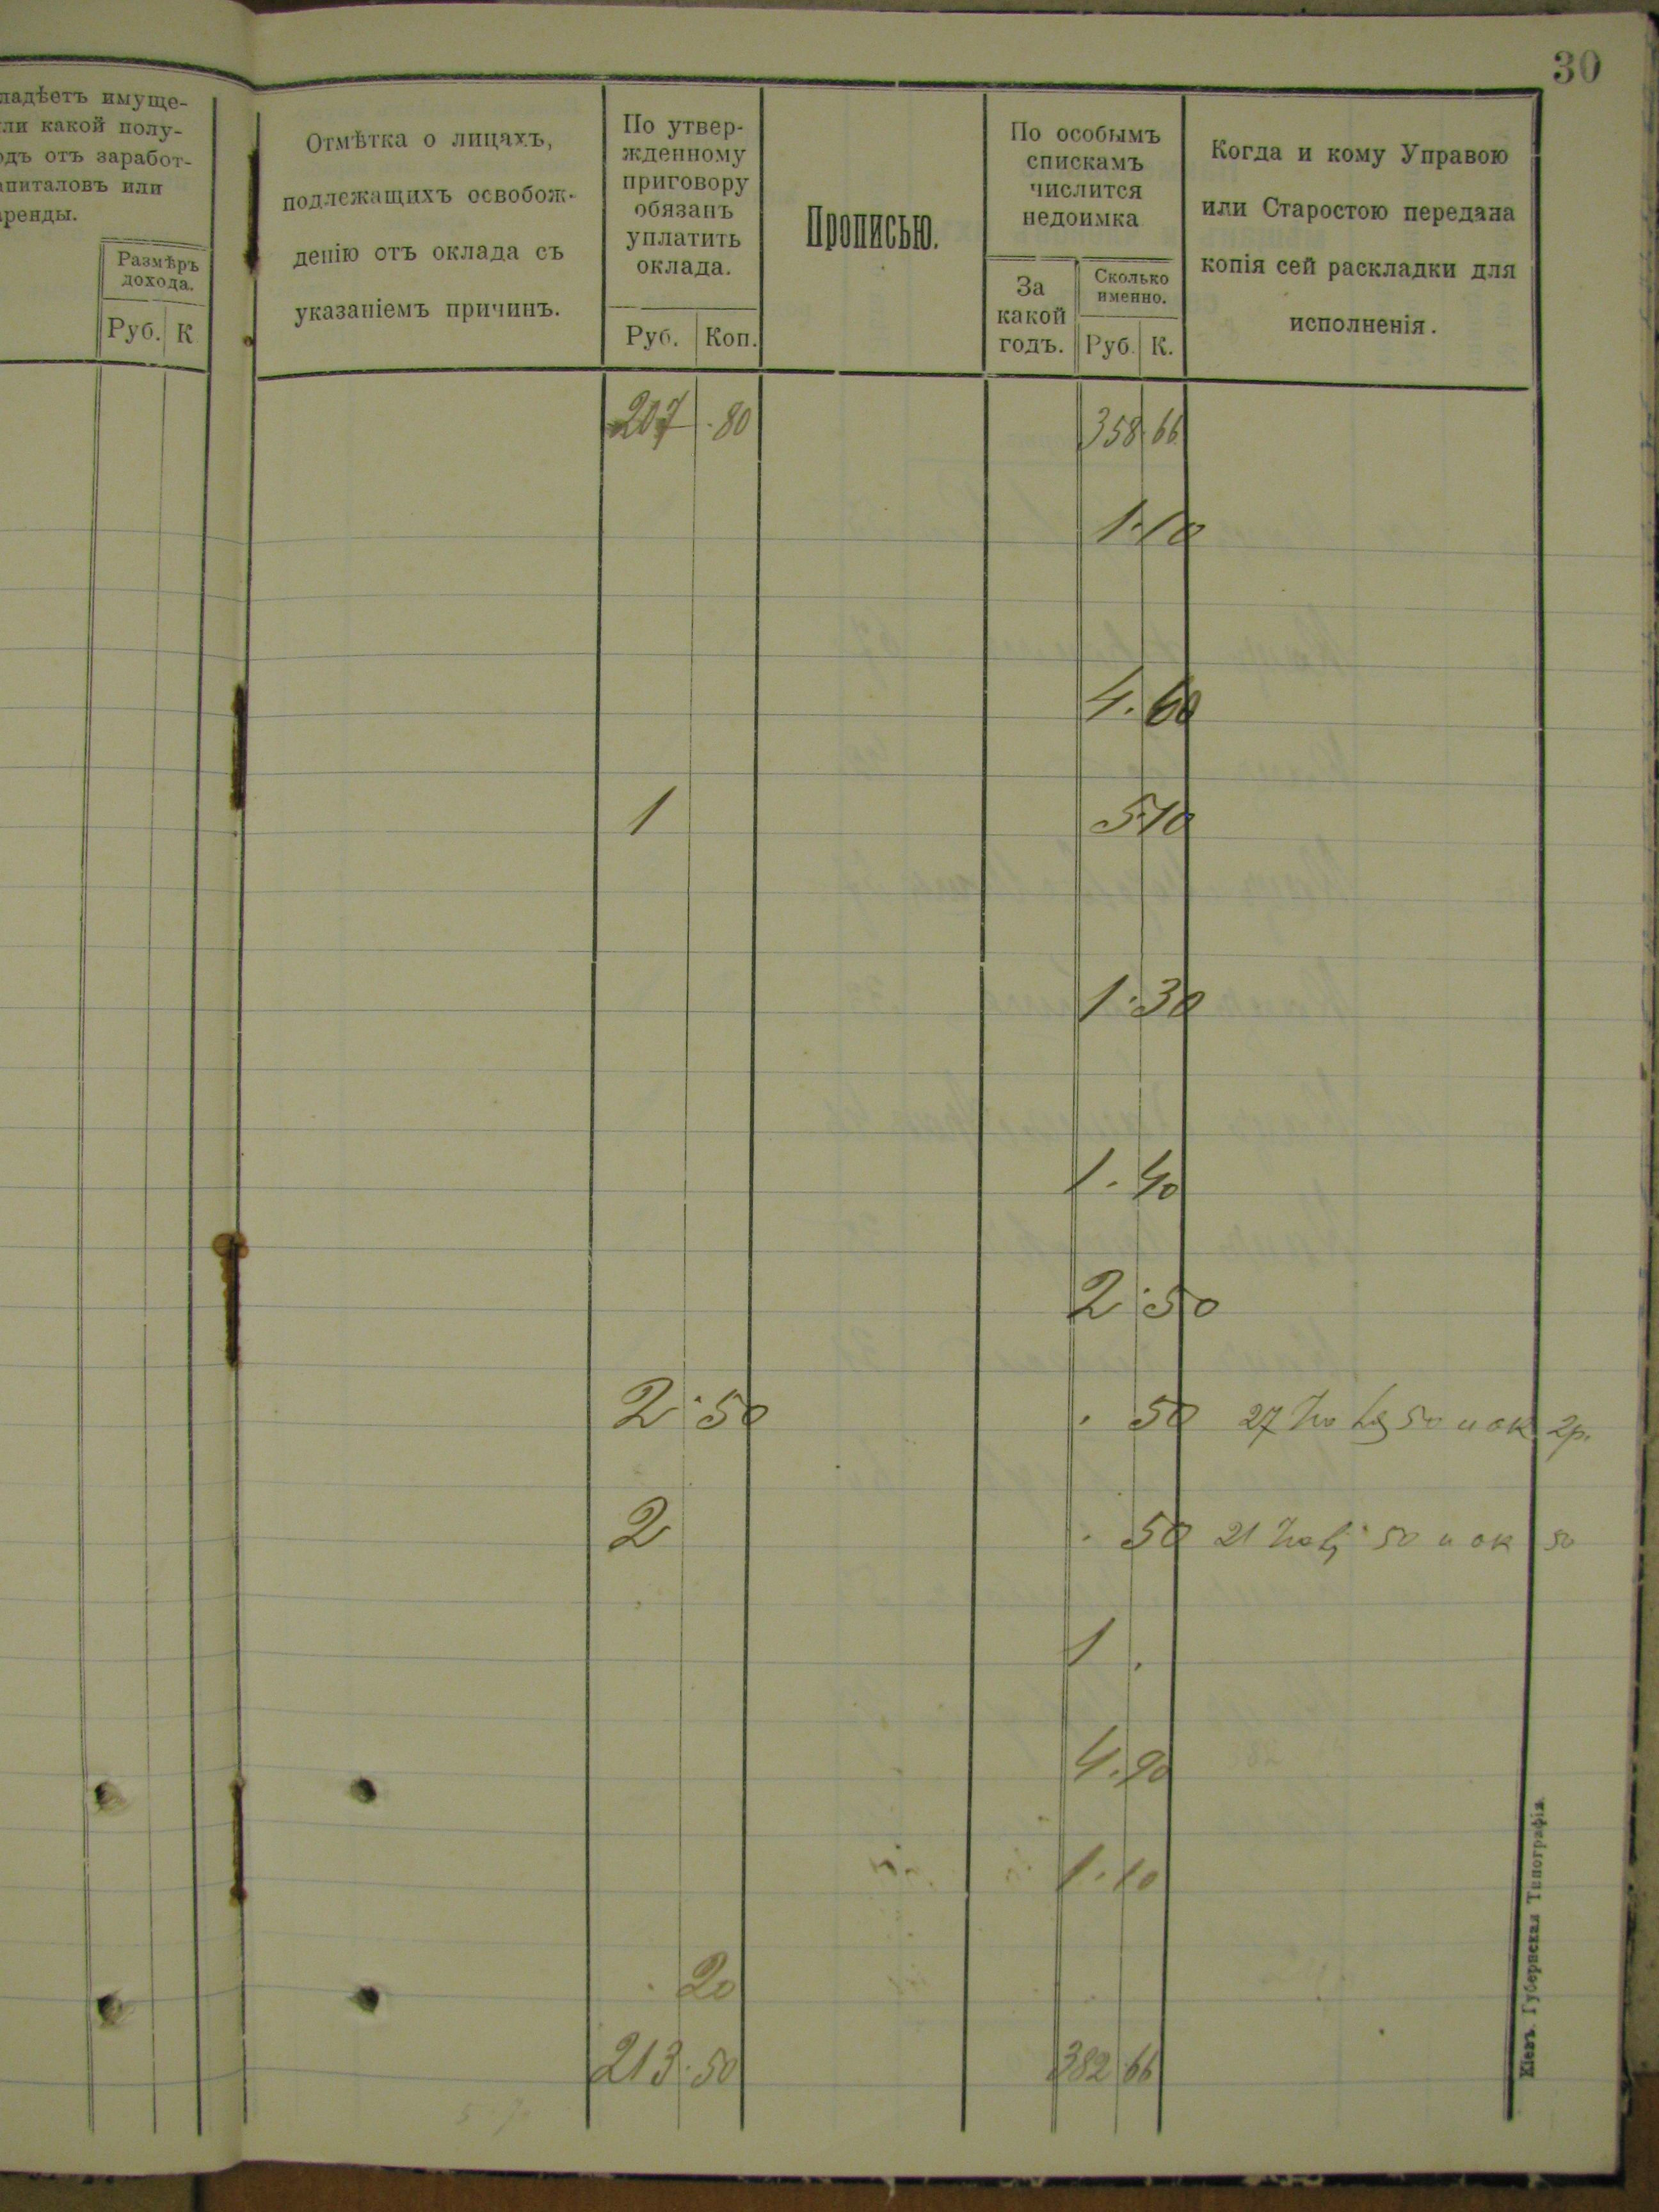 30
ладѣетъ имуще-
ли какой полу-
одъ отъ заработ-
апиталовъ или
ренды.
Размѣръ
дохода.
Руб. К
Отмѣтка о лицахъ,
подлежащихъ освобож-
денію отъ оклада съ
указаніемъ причинъ.
По утвер-
жденному
приговору
обязанъ
уплатить
оклада.
Руб. Коп.
Прописью.
По особымъ
спискамъ
числится
недоимка
За
какой
годъ.
Сколько
именно.
Руб. К.
Когда и кому Управою
или Старостою передана
копія сей раскладки для
исполненія.
207 . 80 358 . 66
1 . 10
4 . 60
1 5 . 10
1 . 30
1 . 40
2 . 50
2 . 50 . 50 27 50 и ок 2р.
2 . 50 21 50 и ок 50
1 .
4 . 90
1 . 10
. 20
213 . 50 382 . 66
Кіевъ. Губернская Типографія.